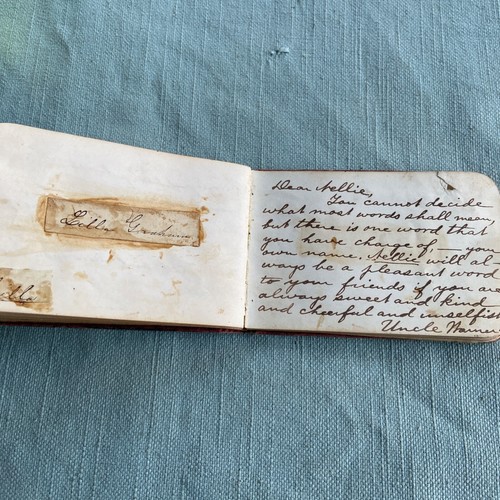 Dear Nellie,
You cannot decide
what most words shall mean,
but there is one word that
you have charge of, — your
own name. Nellie will al
ways be a pleasant word
to your friends if you are
always sweet and kind
and cheerful and unselfish
Uncle Warner